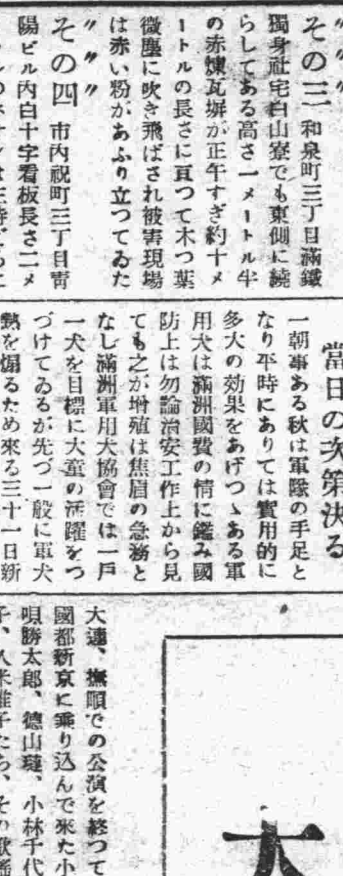 その三 和泉町三丁目滿鐵
獨身社宅白山寮でも東側に繞
らしてある高さ一メートル半
の赤煉瓦塀が正午すぎ約十メ
ートルの長さに亙つて木つ葉
微塵に吹き飛ばされ被害現場
は赤い粉があふり立つてゐた
その四 市内祝町三丁目靑
陽ビル内白十字看板長さ二メ
當日の次第決る
一朝事ある秋は軍隊の手足と
なり平時にありては實用的に
多大の効果をあげつゝある軍
用犬は滿洲國費の情に鑑み國
防上は勿論治安工作上から見
ても之が增殖は焦眉の急務と
なし滿洲軍用犬協會では一戶
一犬を目標に大童の活躍をつ
づけてゐるが先づ一般に軍犬
熱を煽るため來る三十一日新
大連、撫順での公演を終つて
國都新京に乘り込んで來た小
唄勝太郎、德山璉、小林千代